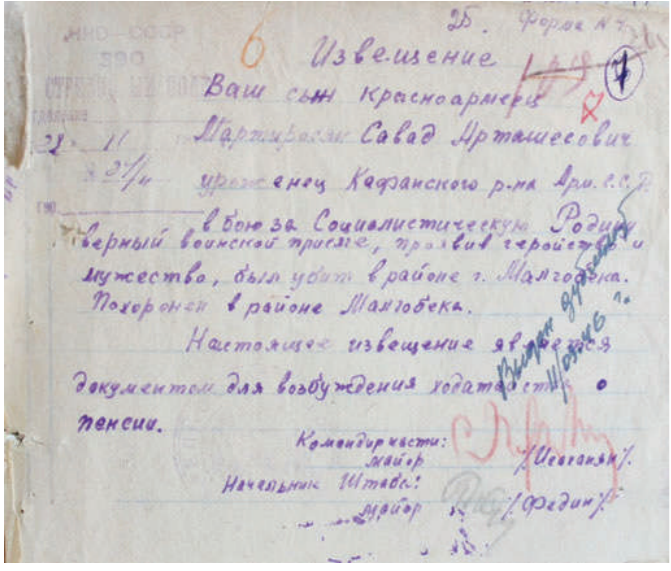 25. Форма № 7
НКО-СССР
6
Извещение
7
Ваш сын красноармеец
Мартиросян Савад Арташесович
28 11
уроженец Кафанского р-на Арм.С.С.Р.
в бою за Социалистическую Родину
верный воинской присяге, проявив геройство и
мужество, был убит в районе г. Малгобека.
Похоронен в районе Малгобека.
Настоящее извещение является
документом для возбуждения ходатайства о
пенсии.
Выдан дубликат
11/09.46 г.
Командир части:
майор
Начальник Штаба:
майор /Федин/.